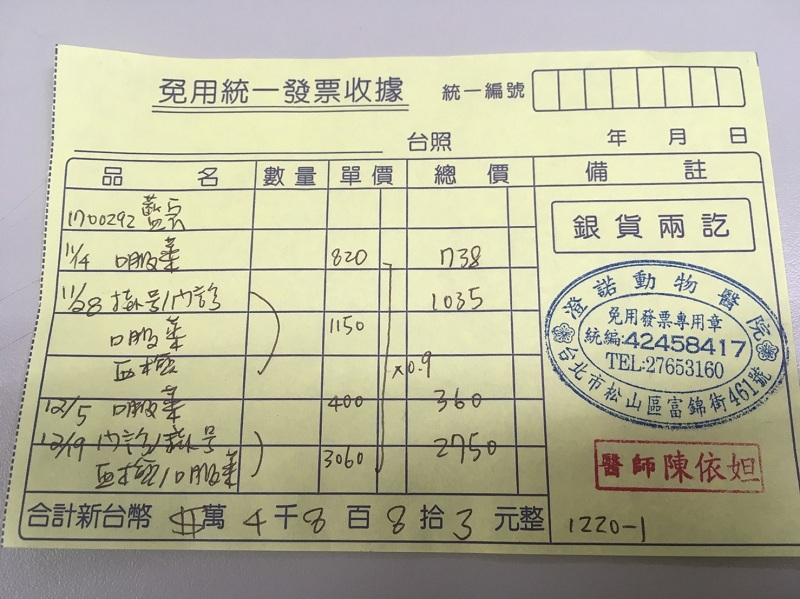 免用統一發票收據 統一編號
台照 年 月 日
品 名 數量 單價 總 價 備 註
1700292 藍
11/4 口服藥 820 738
11/28 掛號/內診 1035
口服藥 1150
血檢
x0.9
12/5 口服藥 400 360
12/19 內診/掛號 2750
血檢/口服藥 3060
合計新台幣 萬 4 千 8 百 8 拾 3 元整
銀貨兩訖
澄諾動物醫院
免用發票專用章
統編:42458417
TEL:27653160
台北市松山區富錦街461號
醫師陳依妲
1220-1